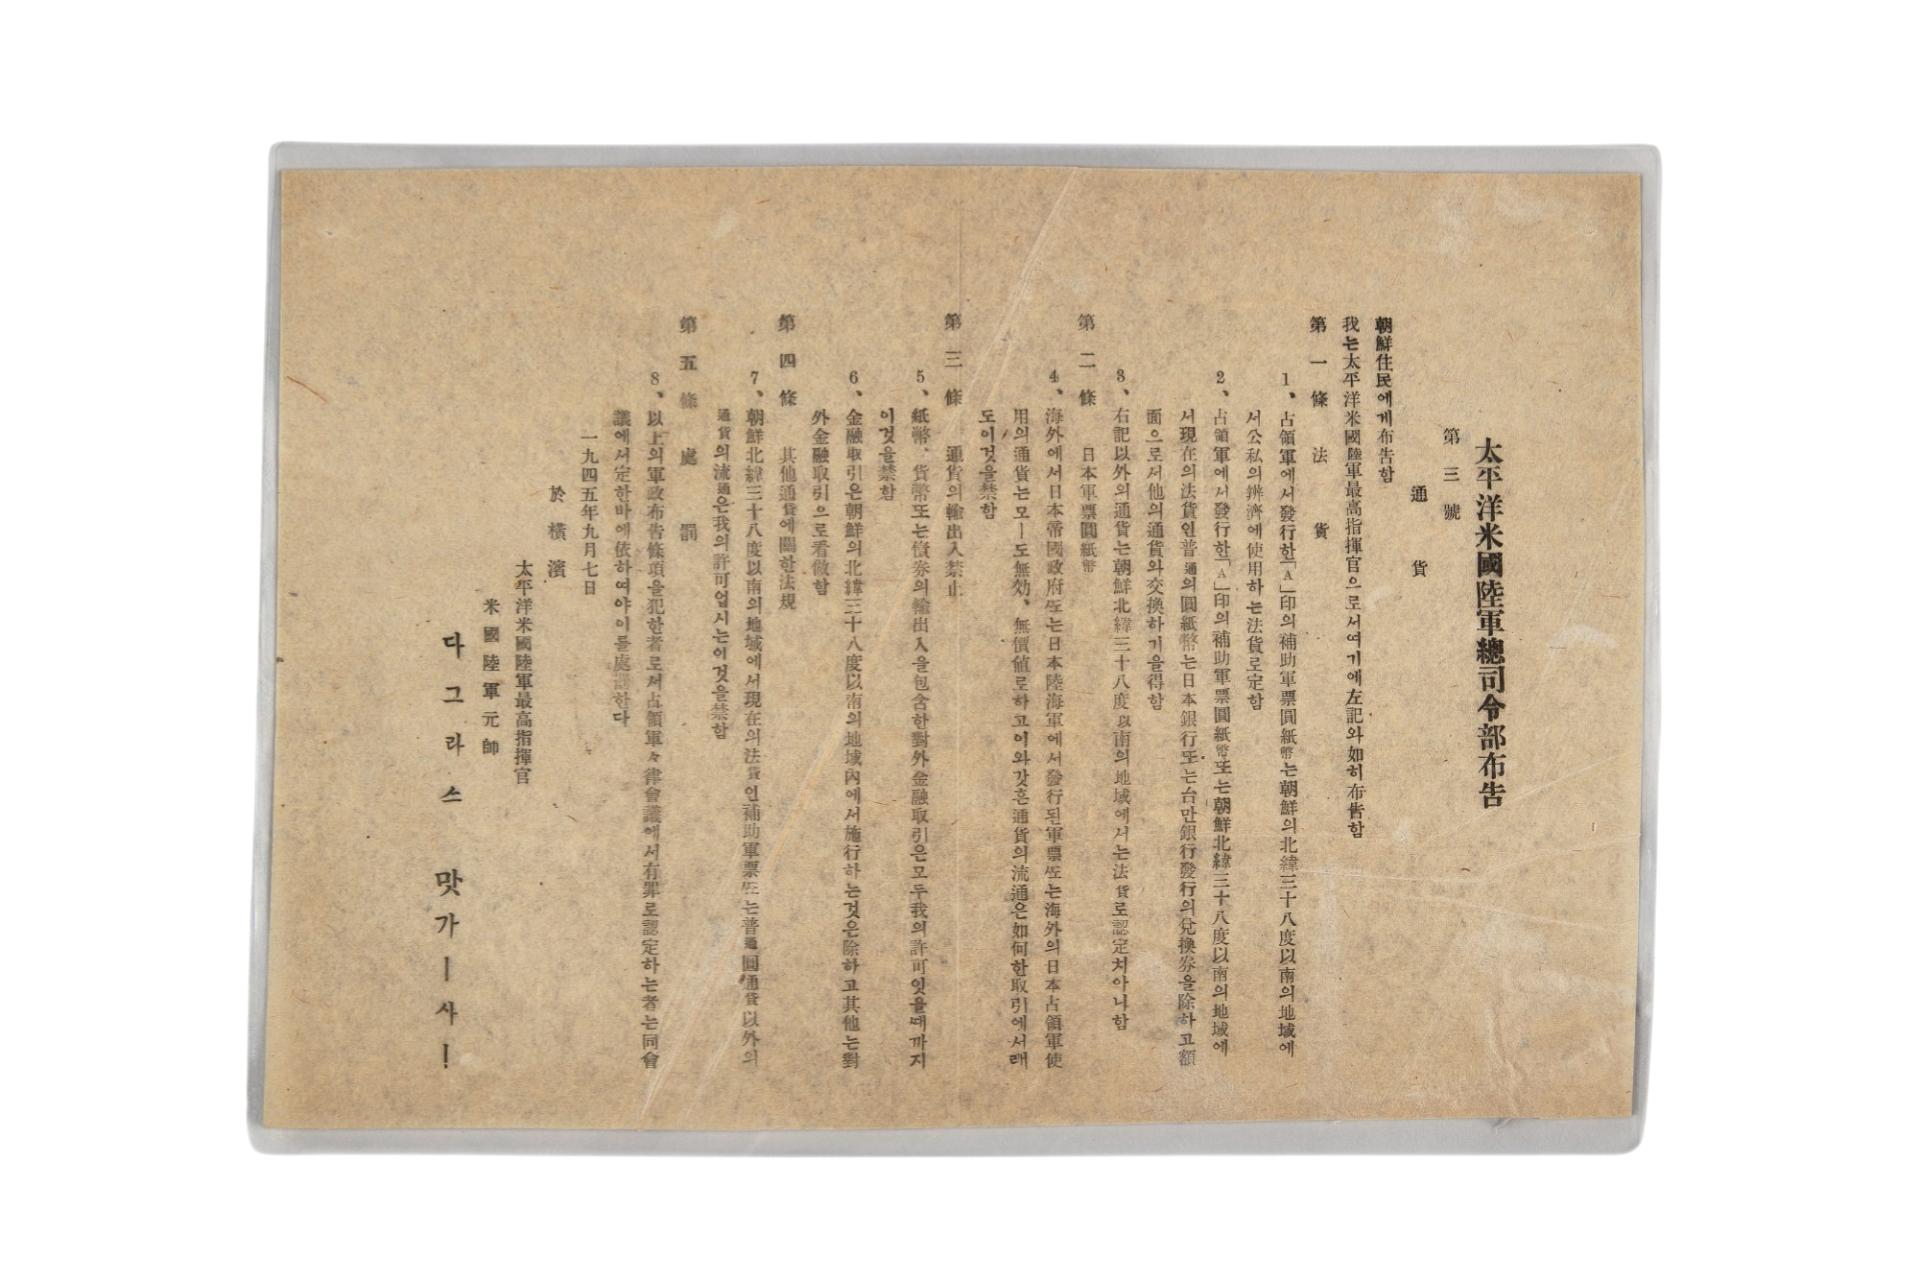 太平洋米國陸軍總司令部布告
第三號
通貨
朝鮮住民에게布告함
我는太平洋米國陸軍最高指揮官으로서여기에左記와如히布告함
第一條 法貨
1、占領軍에서發行한「A」印의補助軍票圓紙幣는朝鮮의北緯三十八度以南의地域에
서公私의辨濟에使用하는法貨로定함
2、占領軍에서發行한「A」印의補助軍票圓紙幣또는朝鮮北緯三十八度以南의地域에
서現在의法貨인普通의圓紙幣는日本銀行또는台만銀行發行의兌換券을除하고額
面으로서他의通貨와交換하기를得함
3、右記以外의通貨는朝鮮北緯三十八度以南의地域에서는法貨로認定치아니함
第二條 日本軍票圓紙幣
4、海外에서日本帝國政府또는日本陸海軍에서發行된軍票또는海外의日本占領軍使
用의通貨는모ー도無効、無價値로하고이와갓흔通貨의流通은如何한取引에서래
도이것을禁함
第三條 通貨의輸出入禁止
5、紙幣、貨幣또는債券의輸出入을包含한對外金融取引은모두我의許可잇을때까지
이것을禁함
6、金融取引은朝鮮의北緯三十八度以南의地域內에서施行하는것은除하고其他는對
外金融取引으로看做함
第四條 其他通貨에關한法規
7、朝鮮北緯三十八度以南의地域에서現在의法貨인補助軍票또는普通圓通貨以外의
通貨의流通은我의許可업시는이것을禁함
第五條 處罰
8、以上의軍政布告條項을犯한者로서占領軍々律會議에서有罪로認定하는者는同會
議에서定한바에依하여야이를處罰한다
一九四五年九月七日
於橫濱
太平洋米國陸軍最高指揮官
米國陸軍元帥
다그라스 맛가ー사ー